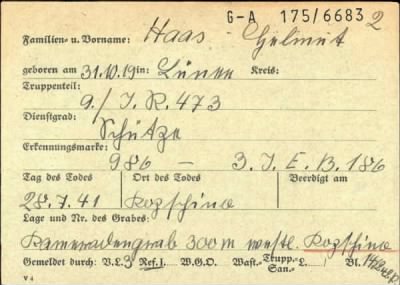 G-A 175/6683 2
Familien- u. Vorname: Haas Helmut
geboren am 31.10.19 in: Lünen Kreis:
Truppenteil:
9./I.R. 473
Dienstgrad:
Schütze
Erkennungsmarke:
986 – 3. I. E. B. 186
Tag des Todes Ort des Todes Beerdigt am
28.7.41 Kozschino
Lage und Nr. des Grabes:
Kameradengrab 300 m westl. Kozschino
Gemeldet durch: V.L. 3 Ref. 1. W.G.O. Wast.-Trupp-San.-/ Bl.
V 4